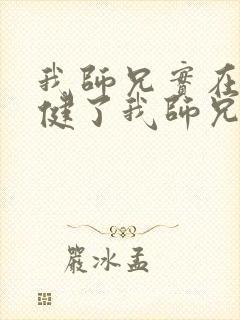 我師兄實在
健了我師兄
嚴冰孟